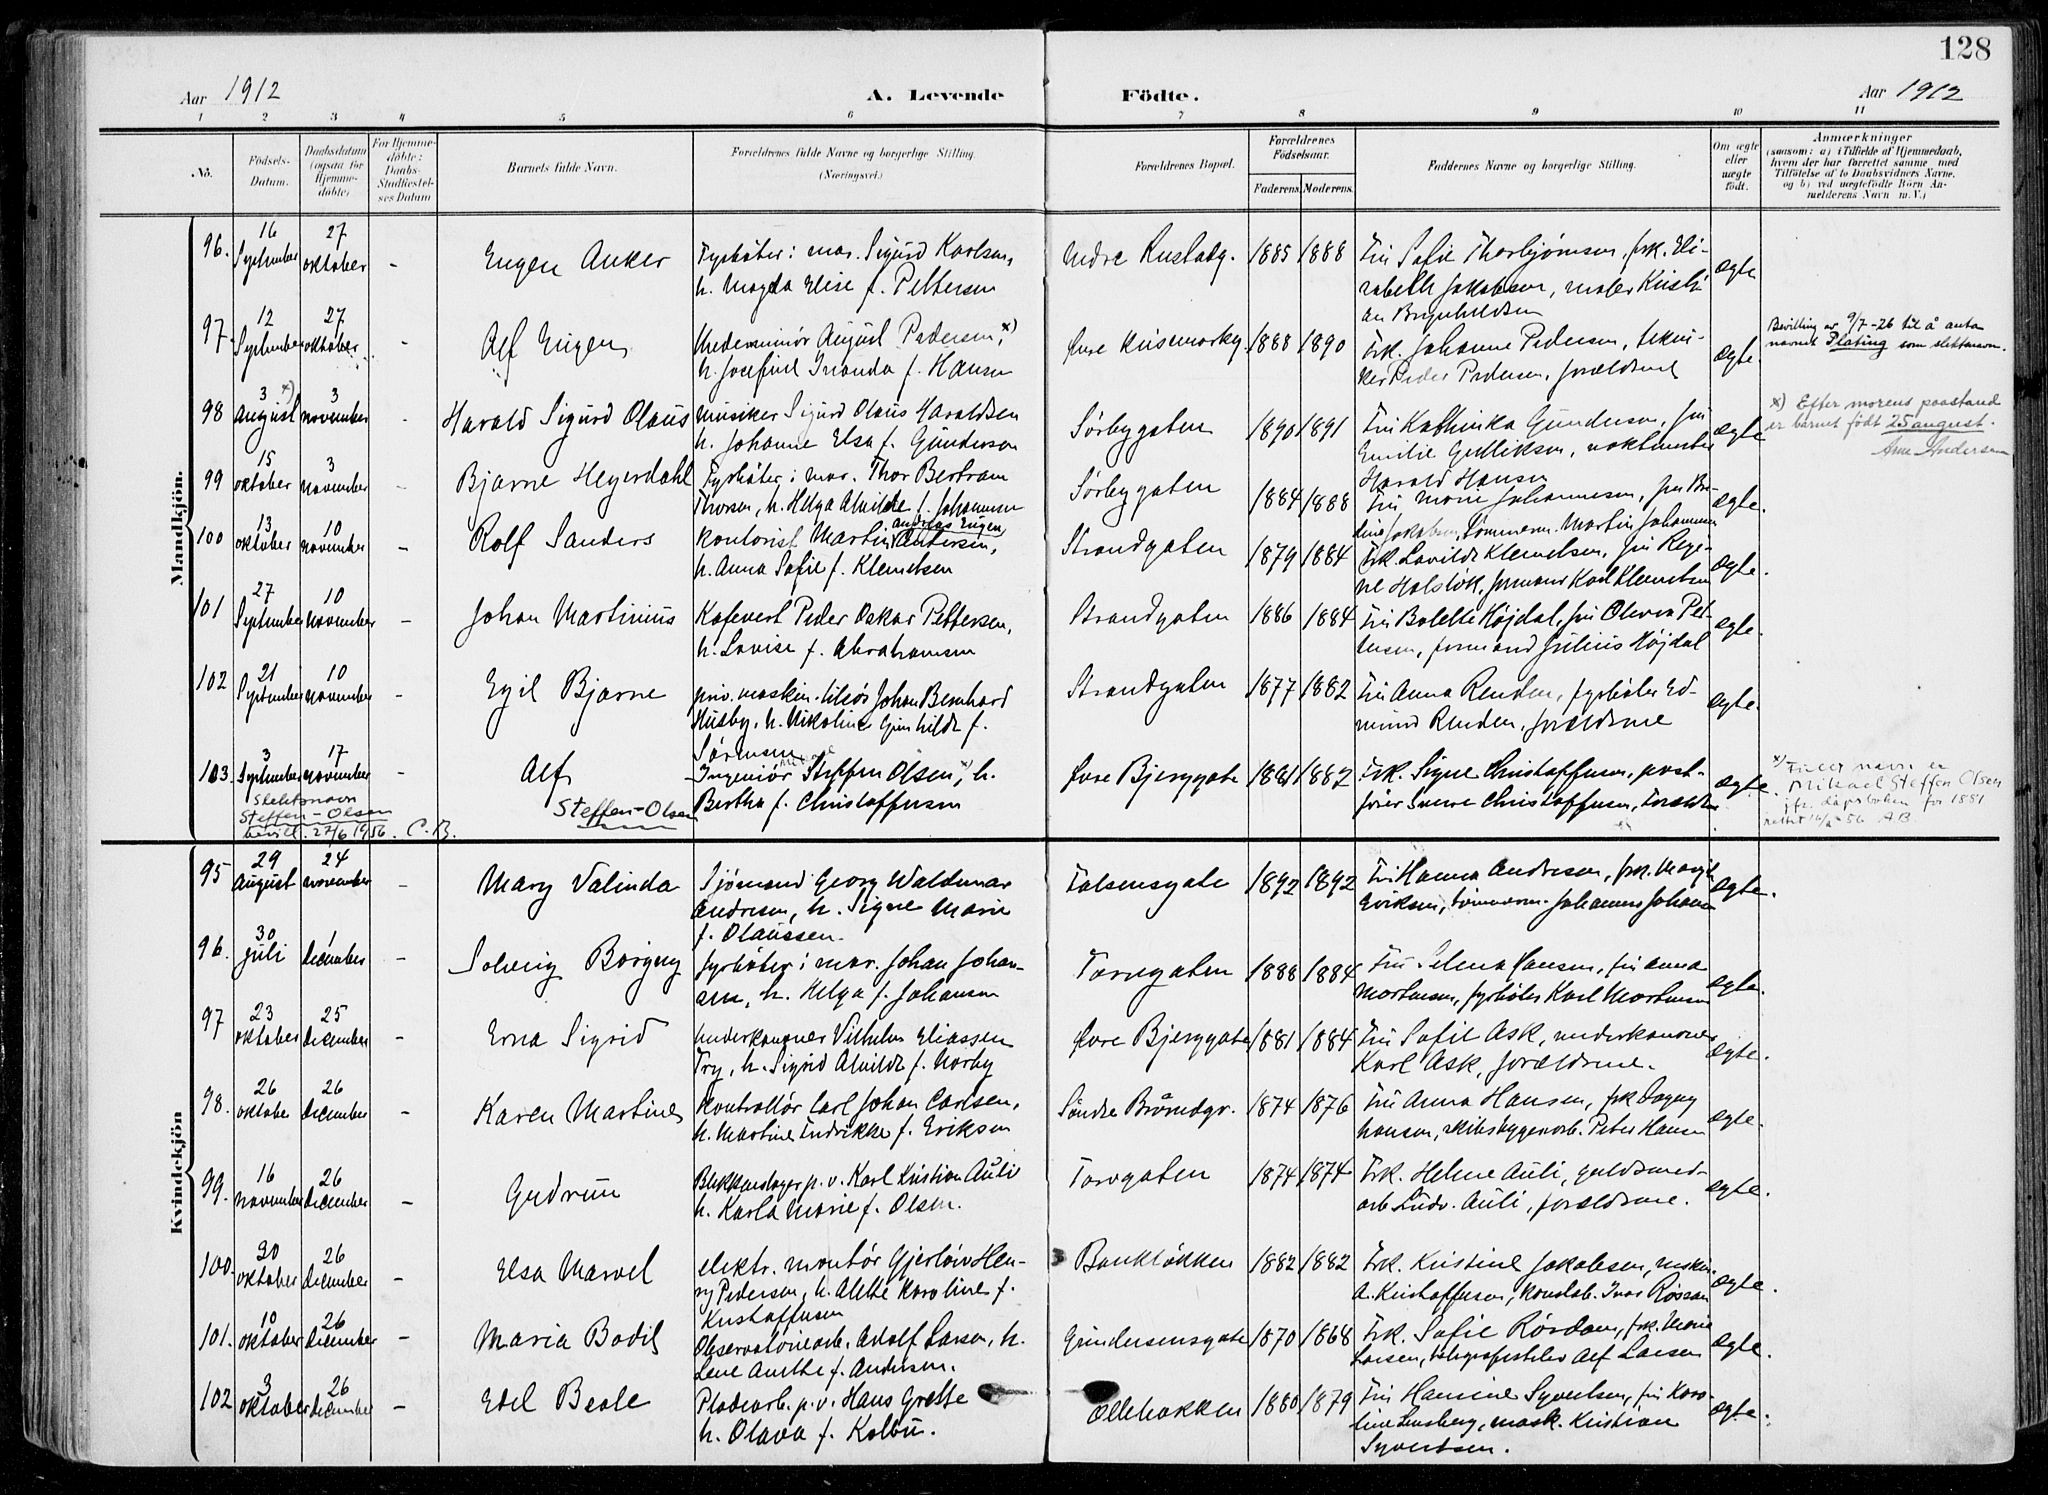 128
Aar 1912
A. Levende Födte.
Aar 1912
1 2 3 4 5 6 7 8 9 10 11
No.
Födsels-
Datum.
Daabsdatum
(ogsaa for
Hjemme-
döbte)
For Hjemme-
döbte:
Daabs-
Stadfæstel-
ses Datum
Barnets fulde Navn.
Forældrenes fulde Navne og borgerlige Stilling.
(Næringsvei.)
Forældrenes Bopæl.
Forældrenes
Födselsaar.
Faderens. Moderens.
Faddernes Navne og borgerlige Stilling.
Om ægte
eller
uægte
födt.
Anmærkninger
(saasom: a) i Tilfælde af Hjemmedaab,
hvem der har forrettet samme, med
Tilföielse af to Daabsvidners Navne,
og b) ved uægtefödte Börn An-
melderens Navn m. V.)
Mandkjön.
96. 16 September 27 oktober - Eugen Anker
Fyrbøter i mar. Sigurd Karlsen,
h. Magda Elise f. Pettersen
Indre Rustadg. 1885 1888
Fru Sofie Thorbjørnsen, frk. Eli-
sabeth Jakobsen, maler Kristi-
an Brynhildsen
ægte
97. 12 September 27 oktober - Alf Eugen
Underminør August Pedersen, x)
h. Josefine Iranda f. Hansen
Øvre Keisemarksg. 1888 1890
Frk. Johanne Pedersen,
Peder Pedersen, forældrene
ægte
Bevilling av 9/7-26 til å anta
navnet Plating som slektsnavn.
98 3 august x) 3 november - Harald Sigurd Olaus
Musiker Sigurd Olaus Haraldsen
h. Johanne Elsa f. Gundersen
Sørbygaten 1890 1891
Fru Kathinka Gundersen, fru
Emilie Gulliksen,
Harald Hansen
ægte
x) Efter morens paastand
er barnet født 25 august.
Arne Andersen
99 15 oktober 3 november - Bjarne Heyerdahl
Fyrbøter i mar. Thor Bertram
Thorsen, h. Helga Alvilde f. Johannsen
Sørbygaten 1884 1888
Fru Marie Johannesen, fru Bor-
dine Jakobsen, tømmerm. Martin Johannsen
ægte.
100 13 oktober 10 november - Rolf Sanders
Kontorist Martin Andreas Eugen Andersen,
h. Anna Sofie f. Klemetsen
Strandgaten 1879 1884
Frk. Lovilde Klemetsen, fru Regi-
ne Holstøk, formand Karl Klemetsen
ægte.
101 27 September 10 november - Johan Martinius
Kafévert Peder Oskar Pettersen,
h. Lovise f. Abrahamsen
Strandgaten 1886 1884
Fru Bolette Højdal, fru Oliva Pet-
tersen, formand Julius Højdal
ægte.
102 21 September 10 november - Egil Bjarne
priv. maskin. tilsør Johan Bernhard
Husby, h. Nikoline Gunhilde f.
Sørensen
Strandgaten 1877 1882
Fru Anna Renden, fyrbøter Ed-
mund Renden, forældrene
ægte.
103. 3 September 17 november - Alf
Steffen-Olsen
Ingeniør Steffen Olsen, x) h.
Bertha f. Christoffersen
Øvre Bjerggate 1881 1882
Frk. Signe Christoffersen, post-
fører Sverre Christoffersen, Forældr.
ægte.
x) Fullt navn er
Mikael Steffen Olsen
jfr. dåpsboken for 1881
rettet 16/2 56 A.B.
Slektsnavn
Steffen-Olsen
bevill. 27/6 1956. C.B.
Kvindekjön
95 29 august 24 november - Mary Valinda
Sjømand Georg Waldemar
Andresen, h. Signe Marie
f. Olaussen.
Falsensgate 1892 1892
Fru Hanna Andresen, frk. Margit
Eriksen, tømmerm. Johannes Johansen
ægte.
96. 30 juli 1 december - Solveig Borgny
fyrbøter i mar. Johan Johan-
sen, h. Helga f. Johansen
Torvgaten 1888 1884
Fru Selma Hansen, fru Anna
Mortensen, fyrbøter Karl Mortensen
ægte.
97 23 oktober 25 december - Erna Sigrid
Underkanoner Vilhelm Eliassen
Try, h. Sigrid Alvilde f. Norby
Øvre Bjerggate 1881 1884
Fru Sofie Ask, underkanoner
Karl Ask, forældrene.
ægte.
98. 26 oktober 26 december - Karen Martine
Kontrollør Carl Johan Carlsen,
h. Martine Fredrikke f. Eriksen
Søndre Brårudgr. 1874 1876
Fru Anna Hansen, frk Dagny
Hansen, skibsbyggerarb. Peter Hansen
ægte.
99. 16 november 26 december - Gudrun
Blikkenslager p. v. Karl Kristian Auli
h. Karla Marie f. Olsen.
Torvgaten 1874 1874
Frk. Helene Auli, guldsmed-
arb. Ludv. Auli, forældrene.
ægte.
100. 30 oktober 26 december - Elsa Marvel
elektr. montør Gjerløw Hen-
ry Pedersen, h. Alette Karoline f.
Kristoffersen
Bankløkken 1882 1882
Frk. Kristine Jakobsen, maskin.
A. Kristoffersen, konstab. Ivar Røssan
ægte.
101. 10 oktober 26 december - Maria Bodil
Observatoriearb. Adolf Larsen, h.
Lene Anethe f. Andersen.
Gundersensgate 1870 1868
Frk. Sofie Rørdam, frk. Marie
Larsen, telegrafbetj. Alf Larsen
ægte.
102 3 oktober 26 december - Edel Beate
Pladearb. p. v. Hans Grette
h. Olava f. Kolbu.
Øllebakken 1880 1879
Fru Hansine Syvertsen, fru Karo-
line Lensberg, mask. Kristian
Syvertsen.
ægte.